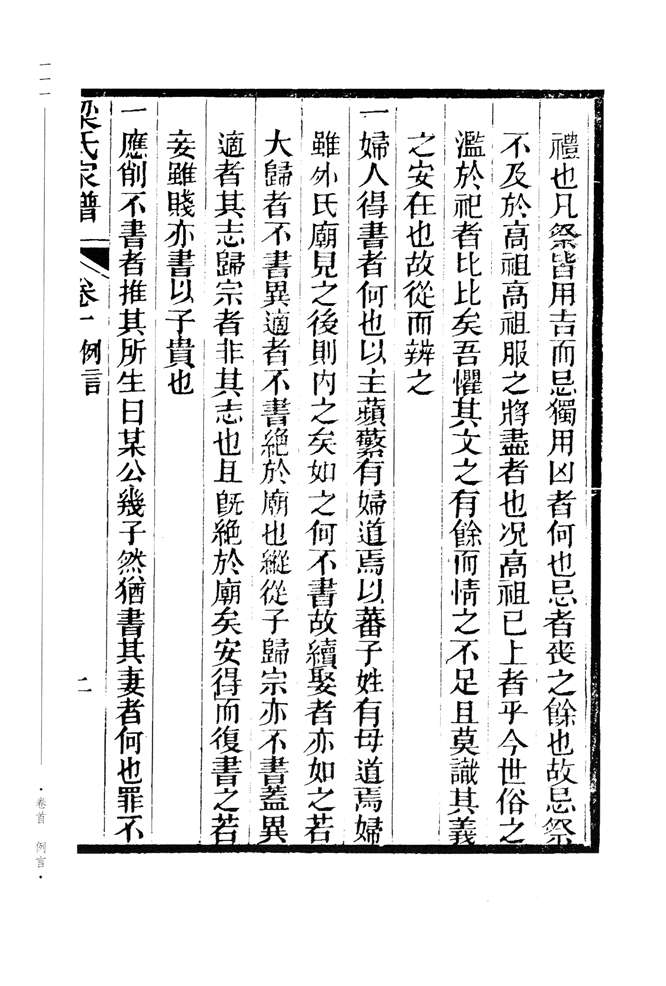 禮也凡祭皆用吉而忌獨用凶者何也忌者喪之餘也故忌祭
不及於高祖高祖服之將盡者也况高祖已上者乎今世俗之
濫於祀者比比矣吾懼其文之有餘而情之不足且莫識其義
之安在也故從而辨之
一婦人得書者何也以主蘋蘩有婦道焉以蕃子姓有母道焉婦
雖外氏廟見之後則内之矣如之何不書故續娶者亦如之若
大歸者不書異適者不書絶於廟也縱從子歸宗亦不書蓋異
適者其志歸宗者非其志也且旣絶於廟矣安得而復書之若
妾雖賤亦書以子貴也
一應削不書者推其所生曰某公幾子然猶書其妻者何也罪不
梁氏家譜 卷一 例言 二
一一一
·卷首 例言·